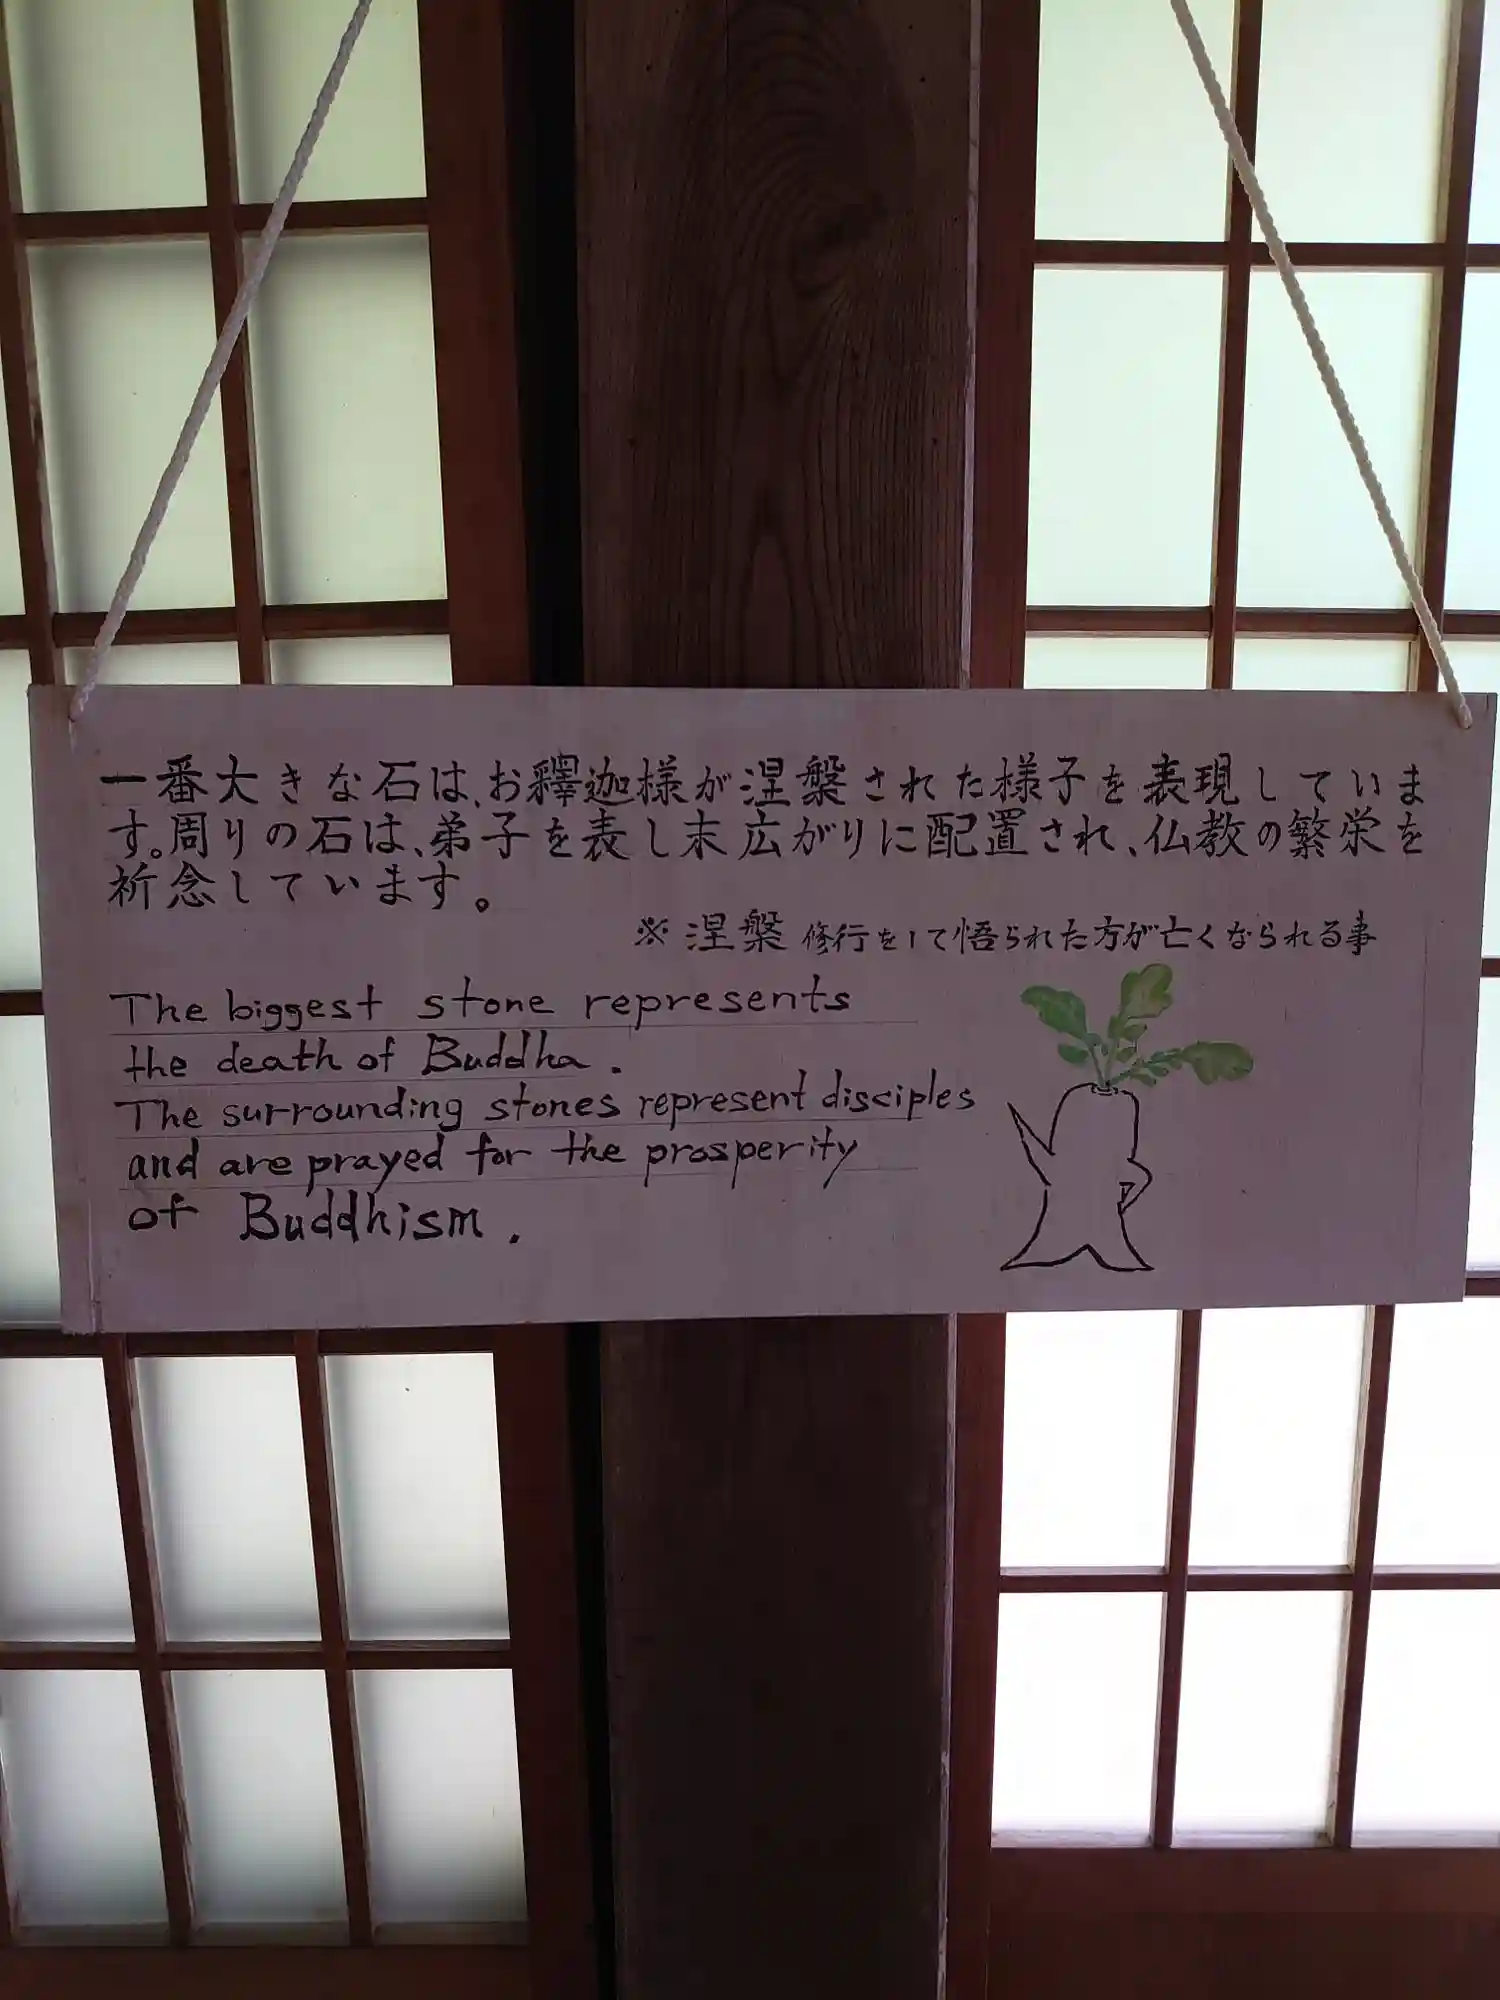 一番大きな石は、お釋迦様が涅槃された様子を表現していま
す。周りの石は、弟子を表し末広がりに配置され、仏教の繁栄を
祈念しています。
※ 涅槃 修行をして悟られた方が亡くなられる事
The biggest stone represents
the death of Buddha.
The surrounding stones represent disciples
and are prayed for the prosperity
of Buddhism.